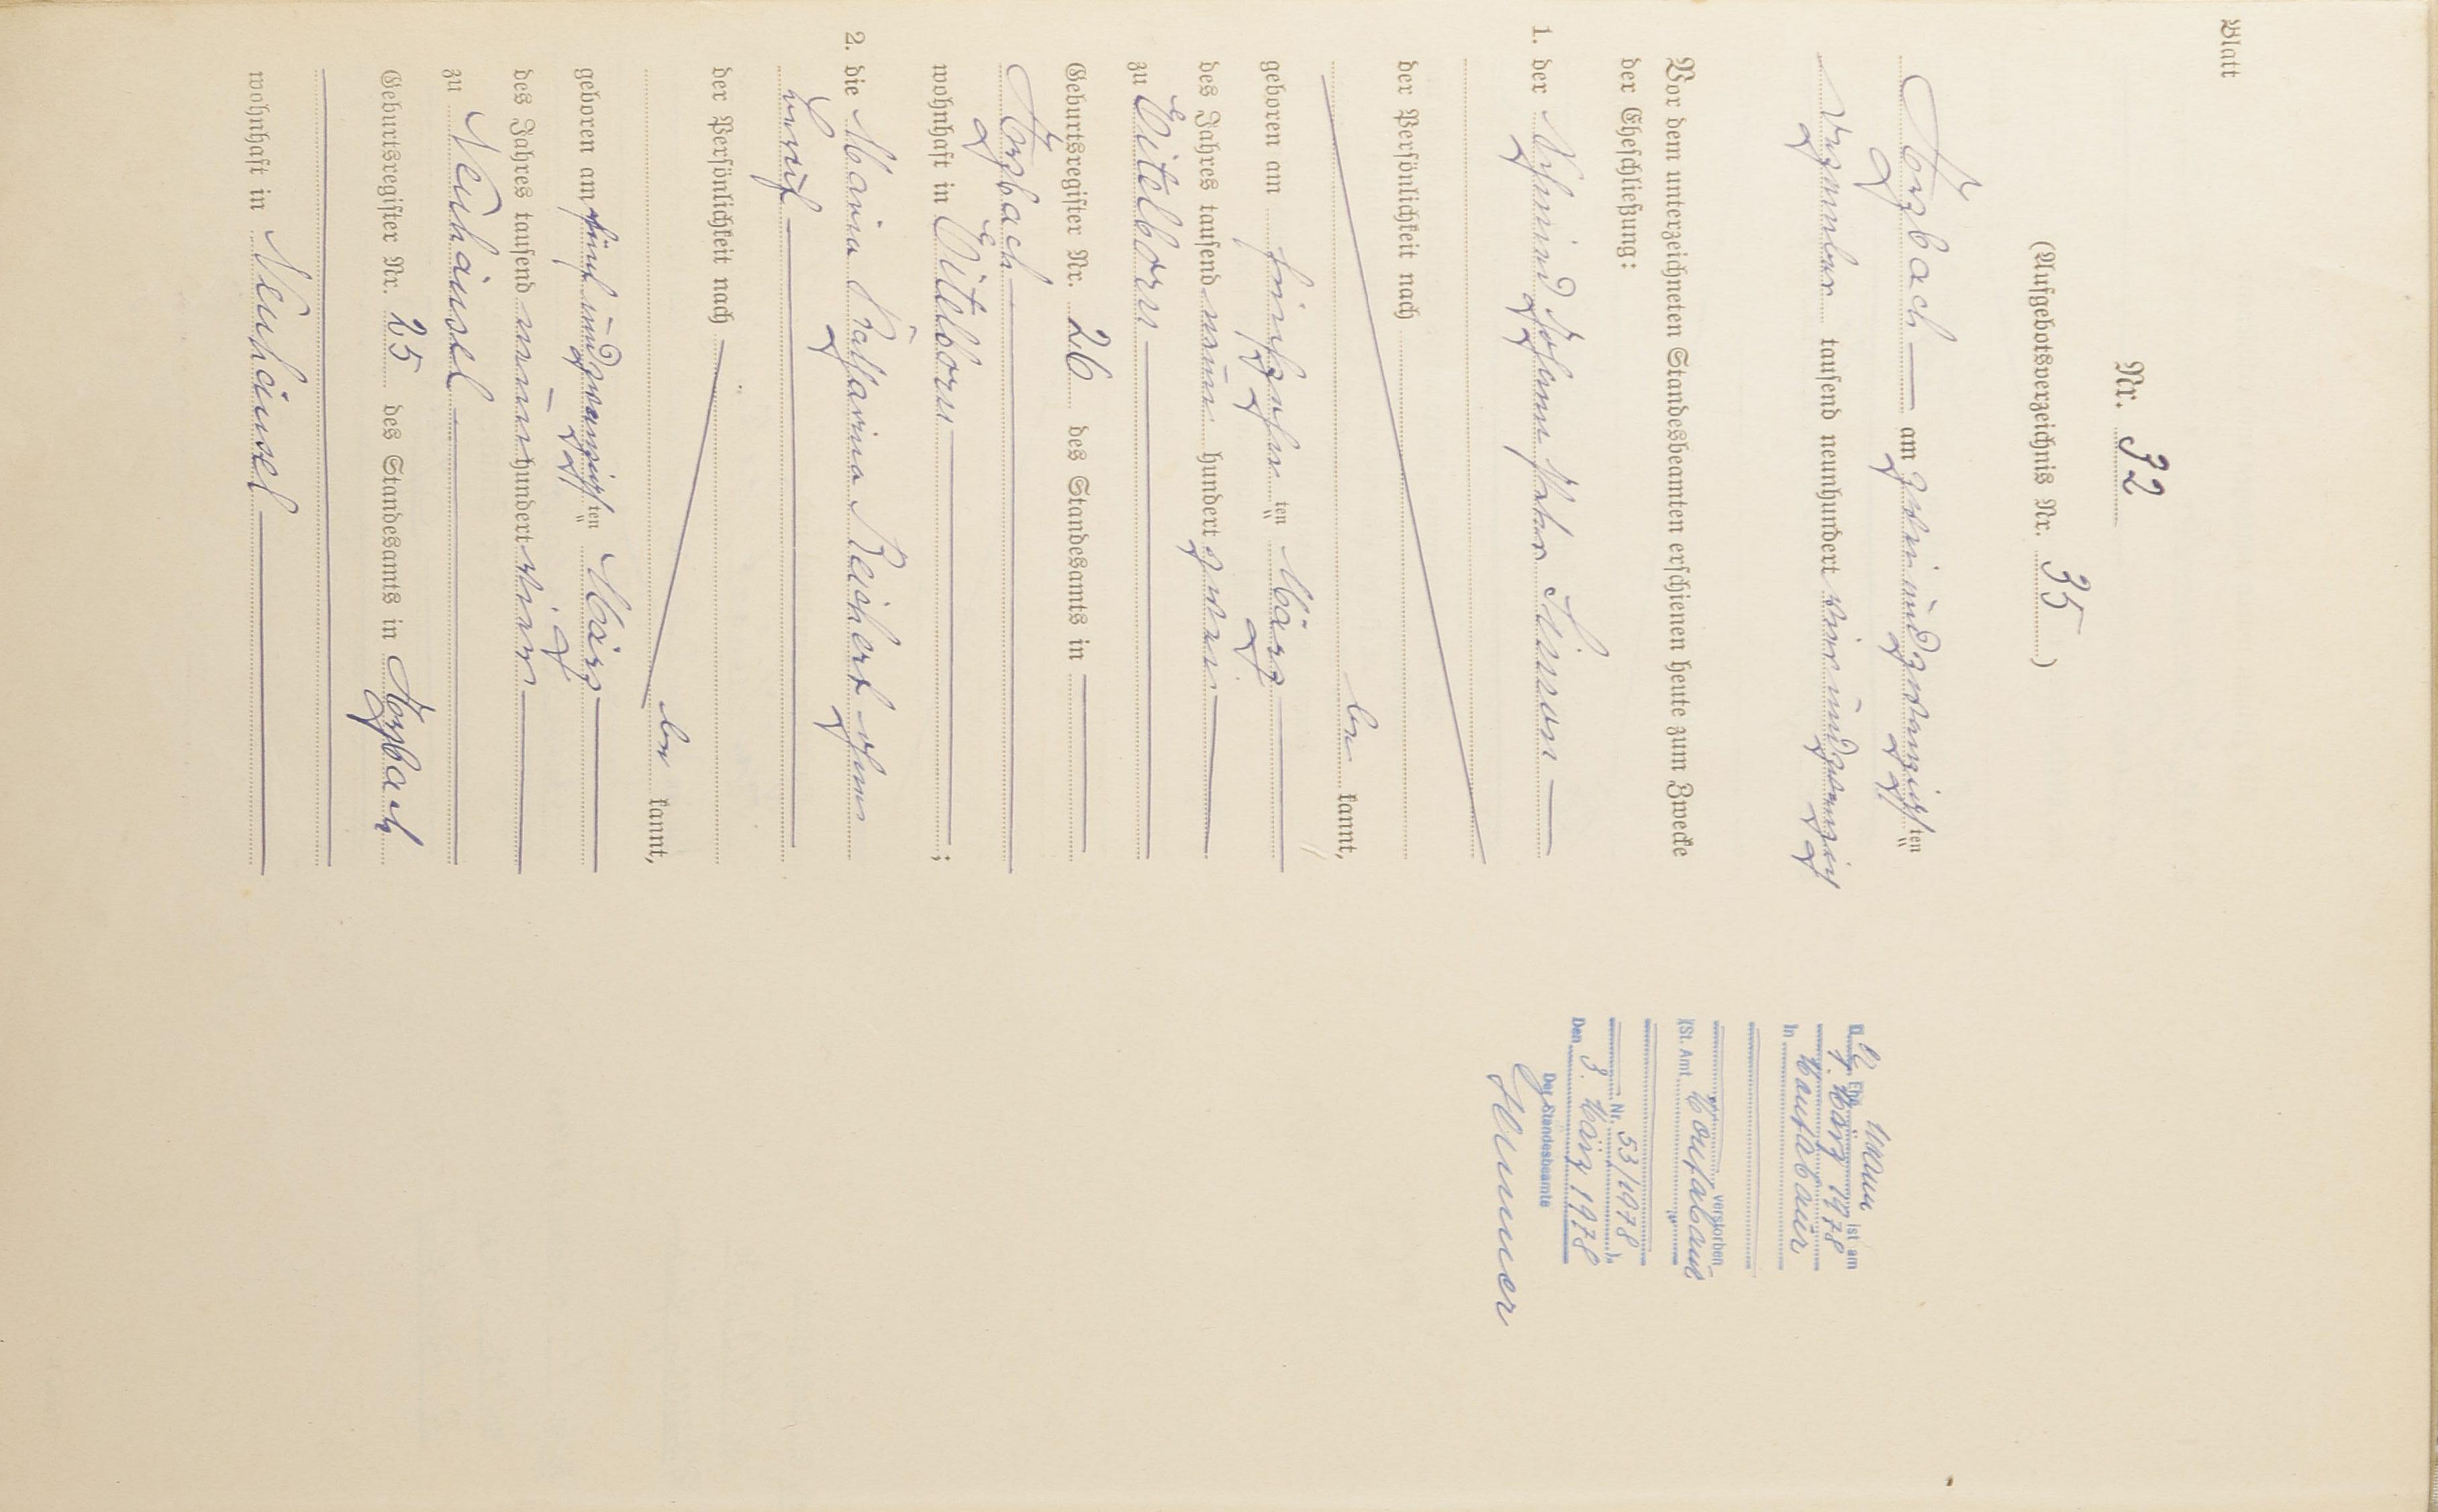 Blatt
Nr. 32
(Aufgebotsverzeichnis Nr. 35)
Arzbach — am zweiundzwanzigsten
Dezember tausend neunhundert vierundzwanzig
Vor dem unterzeichneten Standesbeamten erschienen heute zum Zwecke
der Eheschließung:
1. der Schmied Johann Peter Simon —
der Persönlichkeit nach
be kannt,
geboren am fünfzehn ten März —
des Jahres tausend neun hundert zwei —
zu Eitelborn —
Geburtsregister Nr. 26 des Standesamts in —
Arzbach —
wohnhaft in Eitelborn —;
2. die Maria Katharina Reichert ohne
Beruf —
der Persönlichkeit nach
be kannt,
geboren am fünfundzwanzigsten März —
des Jahres tausend neun hundert vier —
zu Neuhäusel —
Geburtsregister Nr. 25 des Standesamts in Arzbach
wohnhaft in Neuhäusel —
Der Ehemann ist am
März 1978
in Montabaur
verstorben
(St. Amt Montabaur
Nr. 53/1978).
Den 8. März 1978
Der Standesbeamte